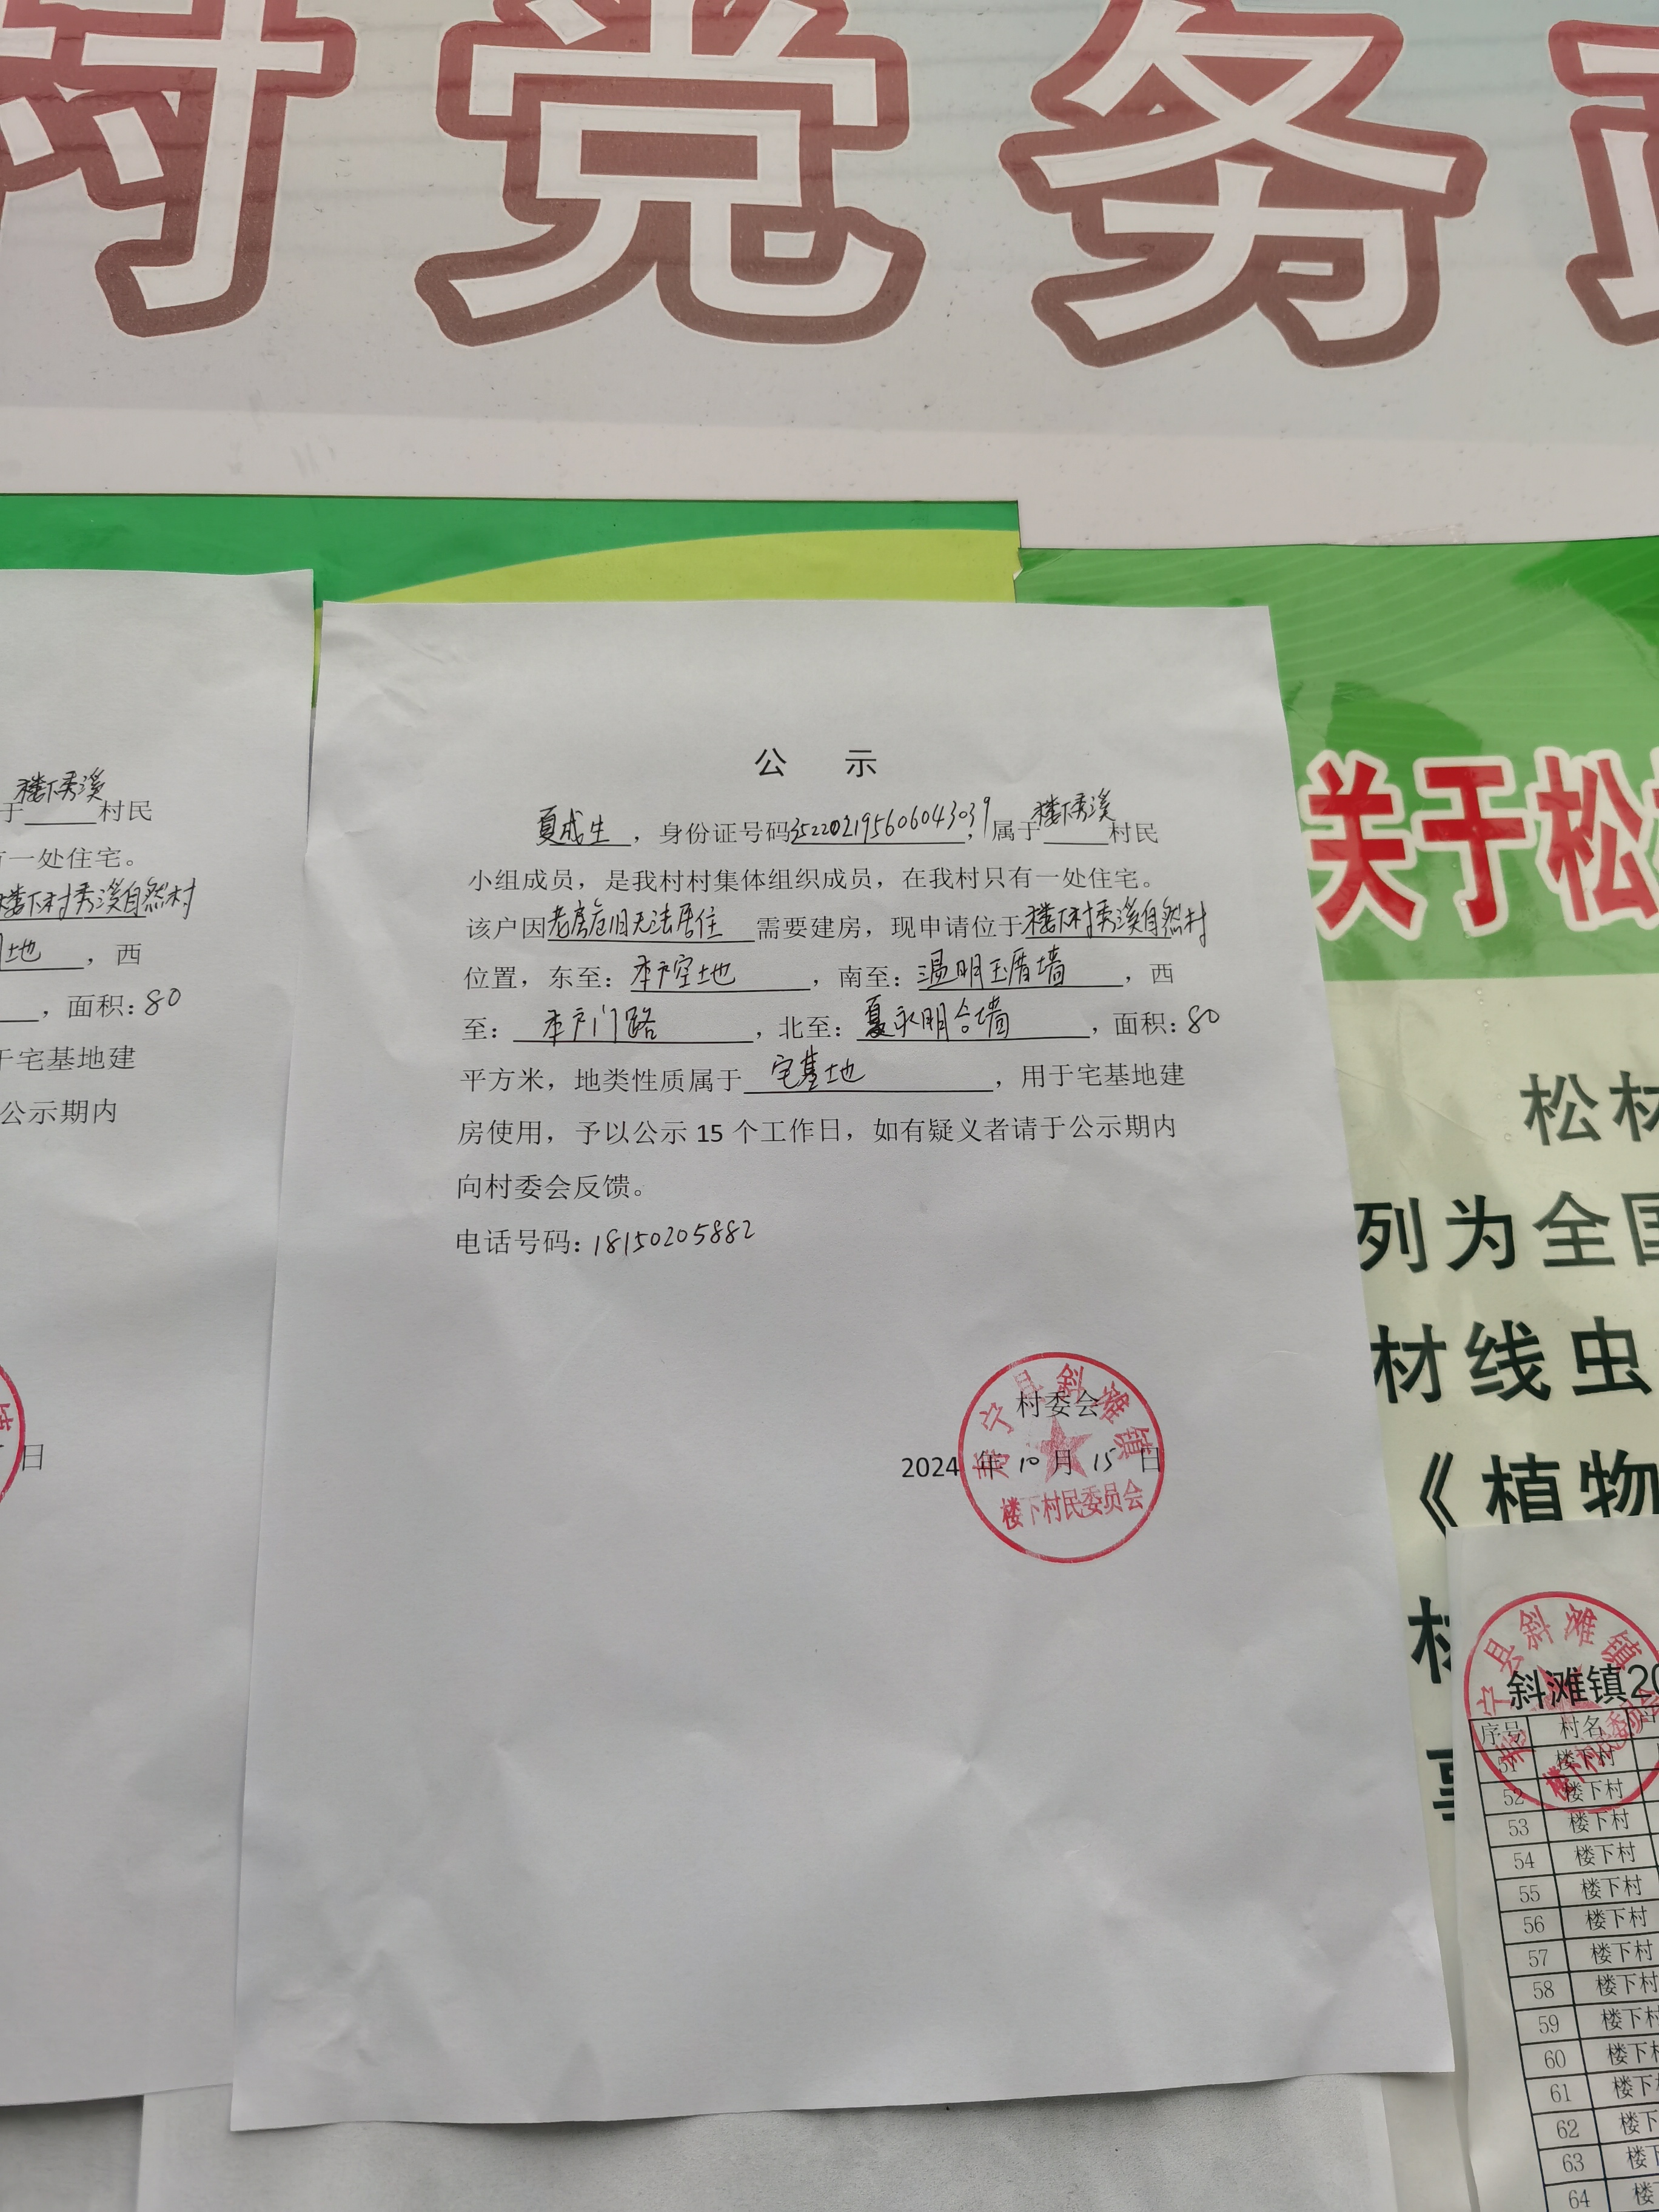 村党务
楼下秀溪
于 村民
一处住宅。
楼下村秀溪自然村
地 ，西
，面积：80
于宅基地建
公示期内
日
公 示
夏成生，身份证号码352202195606043039，属于楼下秀溪村民
小组成员，是我村村集体组织成员，在我村只有一处住宅。
该户因老房危旧无法居住需要建房，现申请位于楼下村秀溪自然村
位置，东至：本户空地，南至：温明玉厝墙，西
至：本户门路，北至：夏永明合墙，面积：80
平方米，地类性质属于宅基地，用于宅基地建
房使用，予以公示 15 个工作日，如有疑义者请于公示期内
向村委会反馈。
电话号码：18150205882
村委会
2024 年 10 月 15 日
寿宁县斜滩镇
楼下村民委员会
关于松
松材
列为全国
材线虫
《植物
寿宁县斜滩镇
斜滩镇20
序号 村名
51 楼下村
52 楼下村
53 楼下村
54 楼下村
55 楼下村
56 楼下村
57 楼下村
58 楼下村
59 楼下村
60 楼下村
61 楼下
62 楼下
63 楼下
64 楼